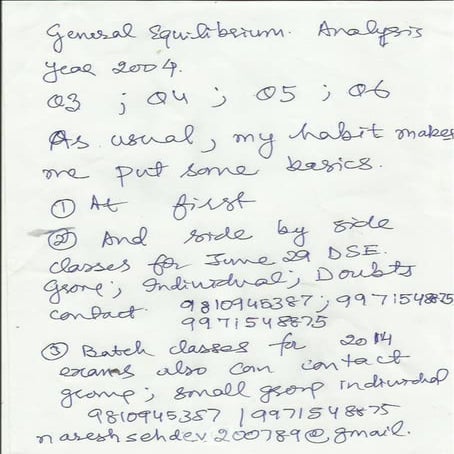 General Equilibrium. Analysis
year 2004.
Q3 ; Q4 ; Q5 ; Q6
As usual, my habit makes
me put some basics.
① At first
② And side by side
classes for June 29 DSE.
Group; Individual; Doubts
contact 9810945387; 9971548875
9971548875
③ Batch classes for 2014
exams also can contact
group; small group individual
9810945387 / 9971548875
nareshsehdev200789@gmail.